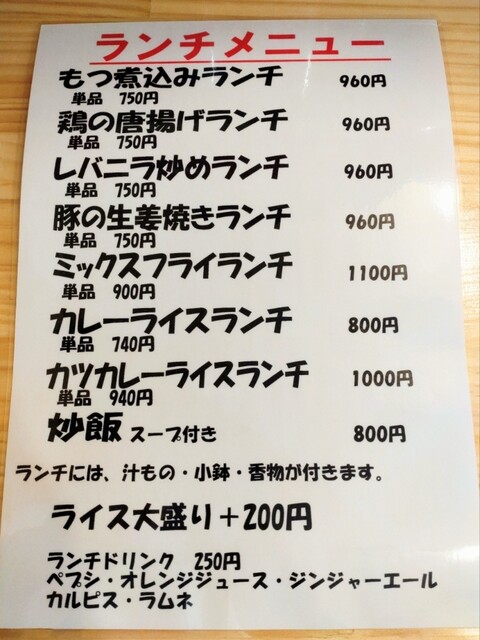 ランチメニュー
もつ煮込みランチ 960円
単品 750円
鶏の唐揚げランチ 960円
単品 750円
レバニラ炒めランチ 960円
単品 750円
豚の生姜焼きランチ 960円
単品 750円
ミックスフライランチ 1100円
単品 900円
カレーライスランチ 800円
単品 740円
カツカレーライスランチ 1000円
単品 940円
炒飯 スープ付き 800円
ランチには、汁もの・小鉢・香物が付きます。
ライス大盛り＋200円
ランチドリンク 250円
ペプシ・オレンジジュース・ジンジャーエール
カルピス・ラムネ